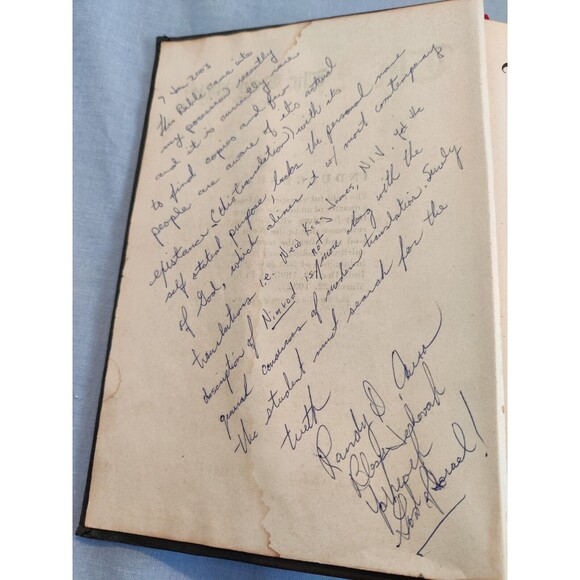 7 Jan 2003
This Bible came into
my possession recently
and it is curiously rare
to find copies and few
people are aware of its actual
existance. (this translation) with its
self stated purpose, lacks the personal name
of God, which aliens it w/ most contemporary
translations i.e. New King James, NIV. yet the
description of Nimrod is not more along with the
general consensus of modern translation. Surely
the student must search for the
truth
Randy D.
Bless Jehovah
God of Israel!